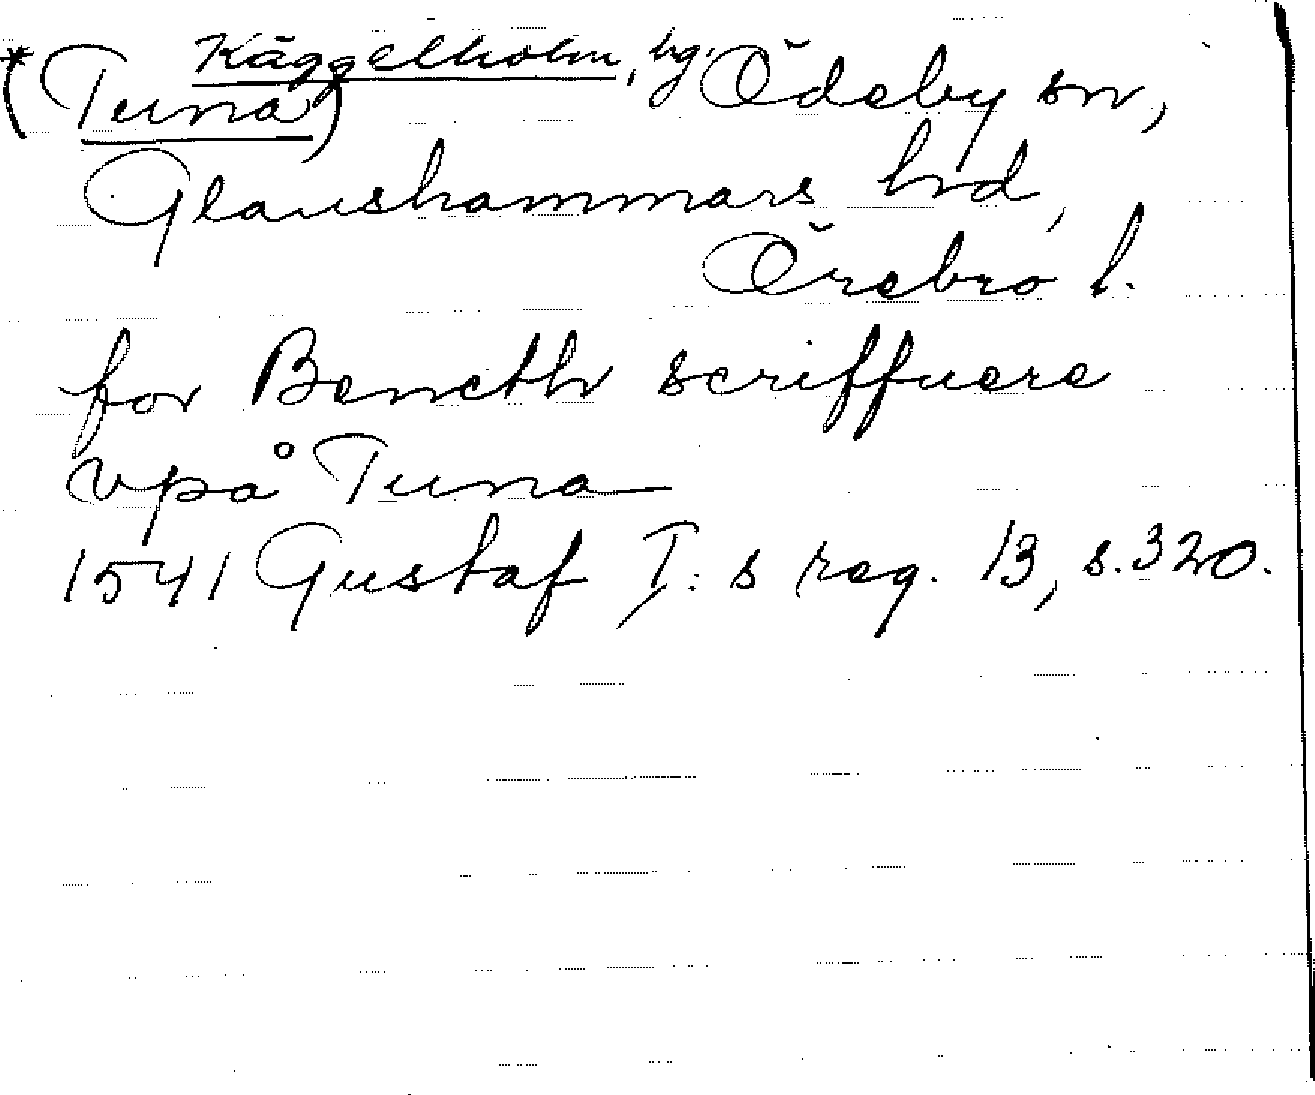 Käggelholm, hg.
*(Tuna) Ödeby sn,
Glanshammars hrd,
Örebro l.
for Beneth scriffuere
vpå Tuna
1541 Gustaf I:s reg. 13, s. 320.